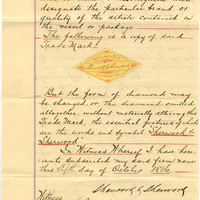 designate the particular brand or
quality of the article contained in
the vessel or package.
The following is a copy of said
Trade Mark!
But the form of diamond may
be changed, or the diamond omitted
altogether, without materially altering the
Trade Mark, the essential features of which
are the words and symbol Sherwood &
Sherwood
In Witness Whereof I have here
unto subscribed my said firm name
this day of October 1886
Sherwood & Sherwood
Witness